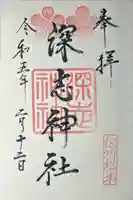 奉拝
深志神社
令和五年
二月十二日
深志
神社